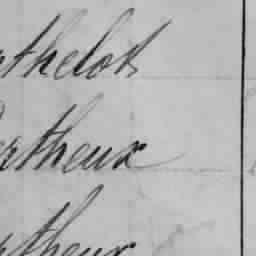 rthelot
ertheux
rtheux